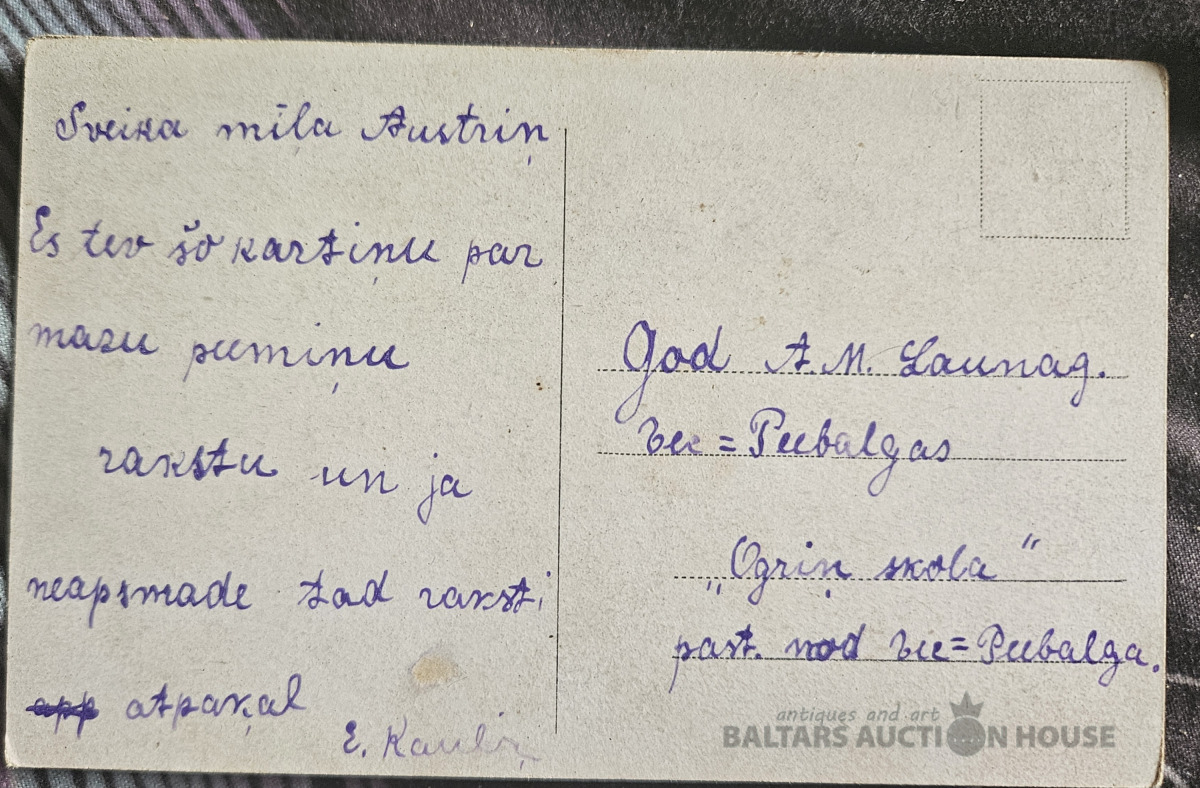 Sveika mīļa Austriņ
Es tev šo kartiņu par
mazu peemiņu
rakstu un ja
neapsmade tad raksti
app atpakaļ
E. Kauliņ
God A. M. Launag.
Vec=Peebalgas
„Ogriņ skola“
past. nod Vec=Peebalga.
antiques and art
BALTARS AUCTION HOUSE